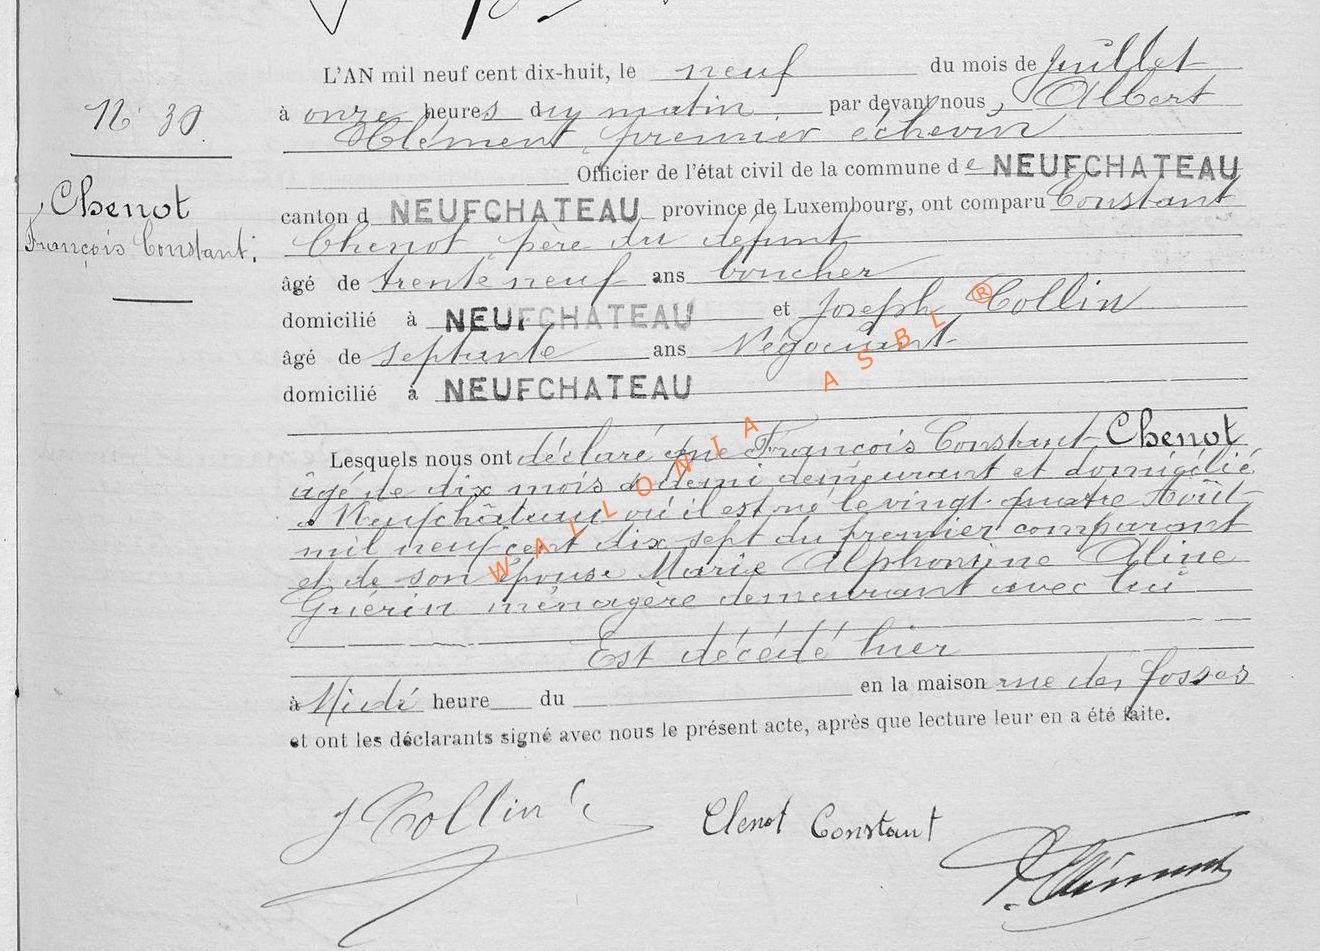 L'AN mil neuf cent dix-huit, le neuf du mois de Juillet
N° 30.
à onze heures du matin par devant nous, Albert
Clément, premier échevin
Officier de l'état civil de la commune de NEUFCHATEAU
Chenot
canton d NEUFCHATEAU province de Luxembourg, ont comparu Constant
François Constant.
Chenot père du défunt
âgé de trente neuf ans boucher
domicilié à NEUFCHATEAU et Joseph Collin
âgé de septante ans Négociant
domicilié à NEUFCHATEAU
Lesquels nous ont déclaré que François Constant Chenot
âgé de dix mois & demi demeurant et domicilié
à Neufchâteau où il est né le vingt-quatre Août
mil neuf cent dix sept du premier comparant
et de son épouse Marie Alphonsine Aline
Guérin ménagère demeurant avec lui
Est décédé hier
à Midi heure du en la maison rue des fosses
et ont les déclarants signé avec nous le présent acte, après que lecture leur en a été faite.
J Collin
Chenot Constant
Clément
WALLONIA ASBL ®